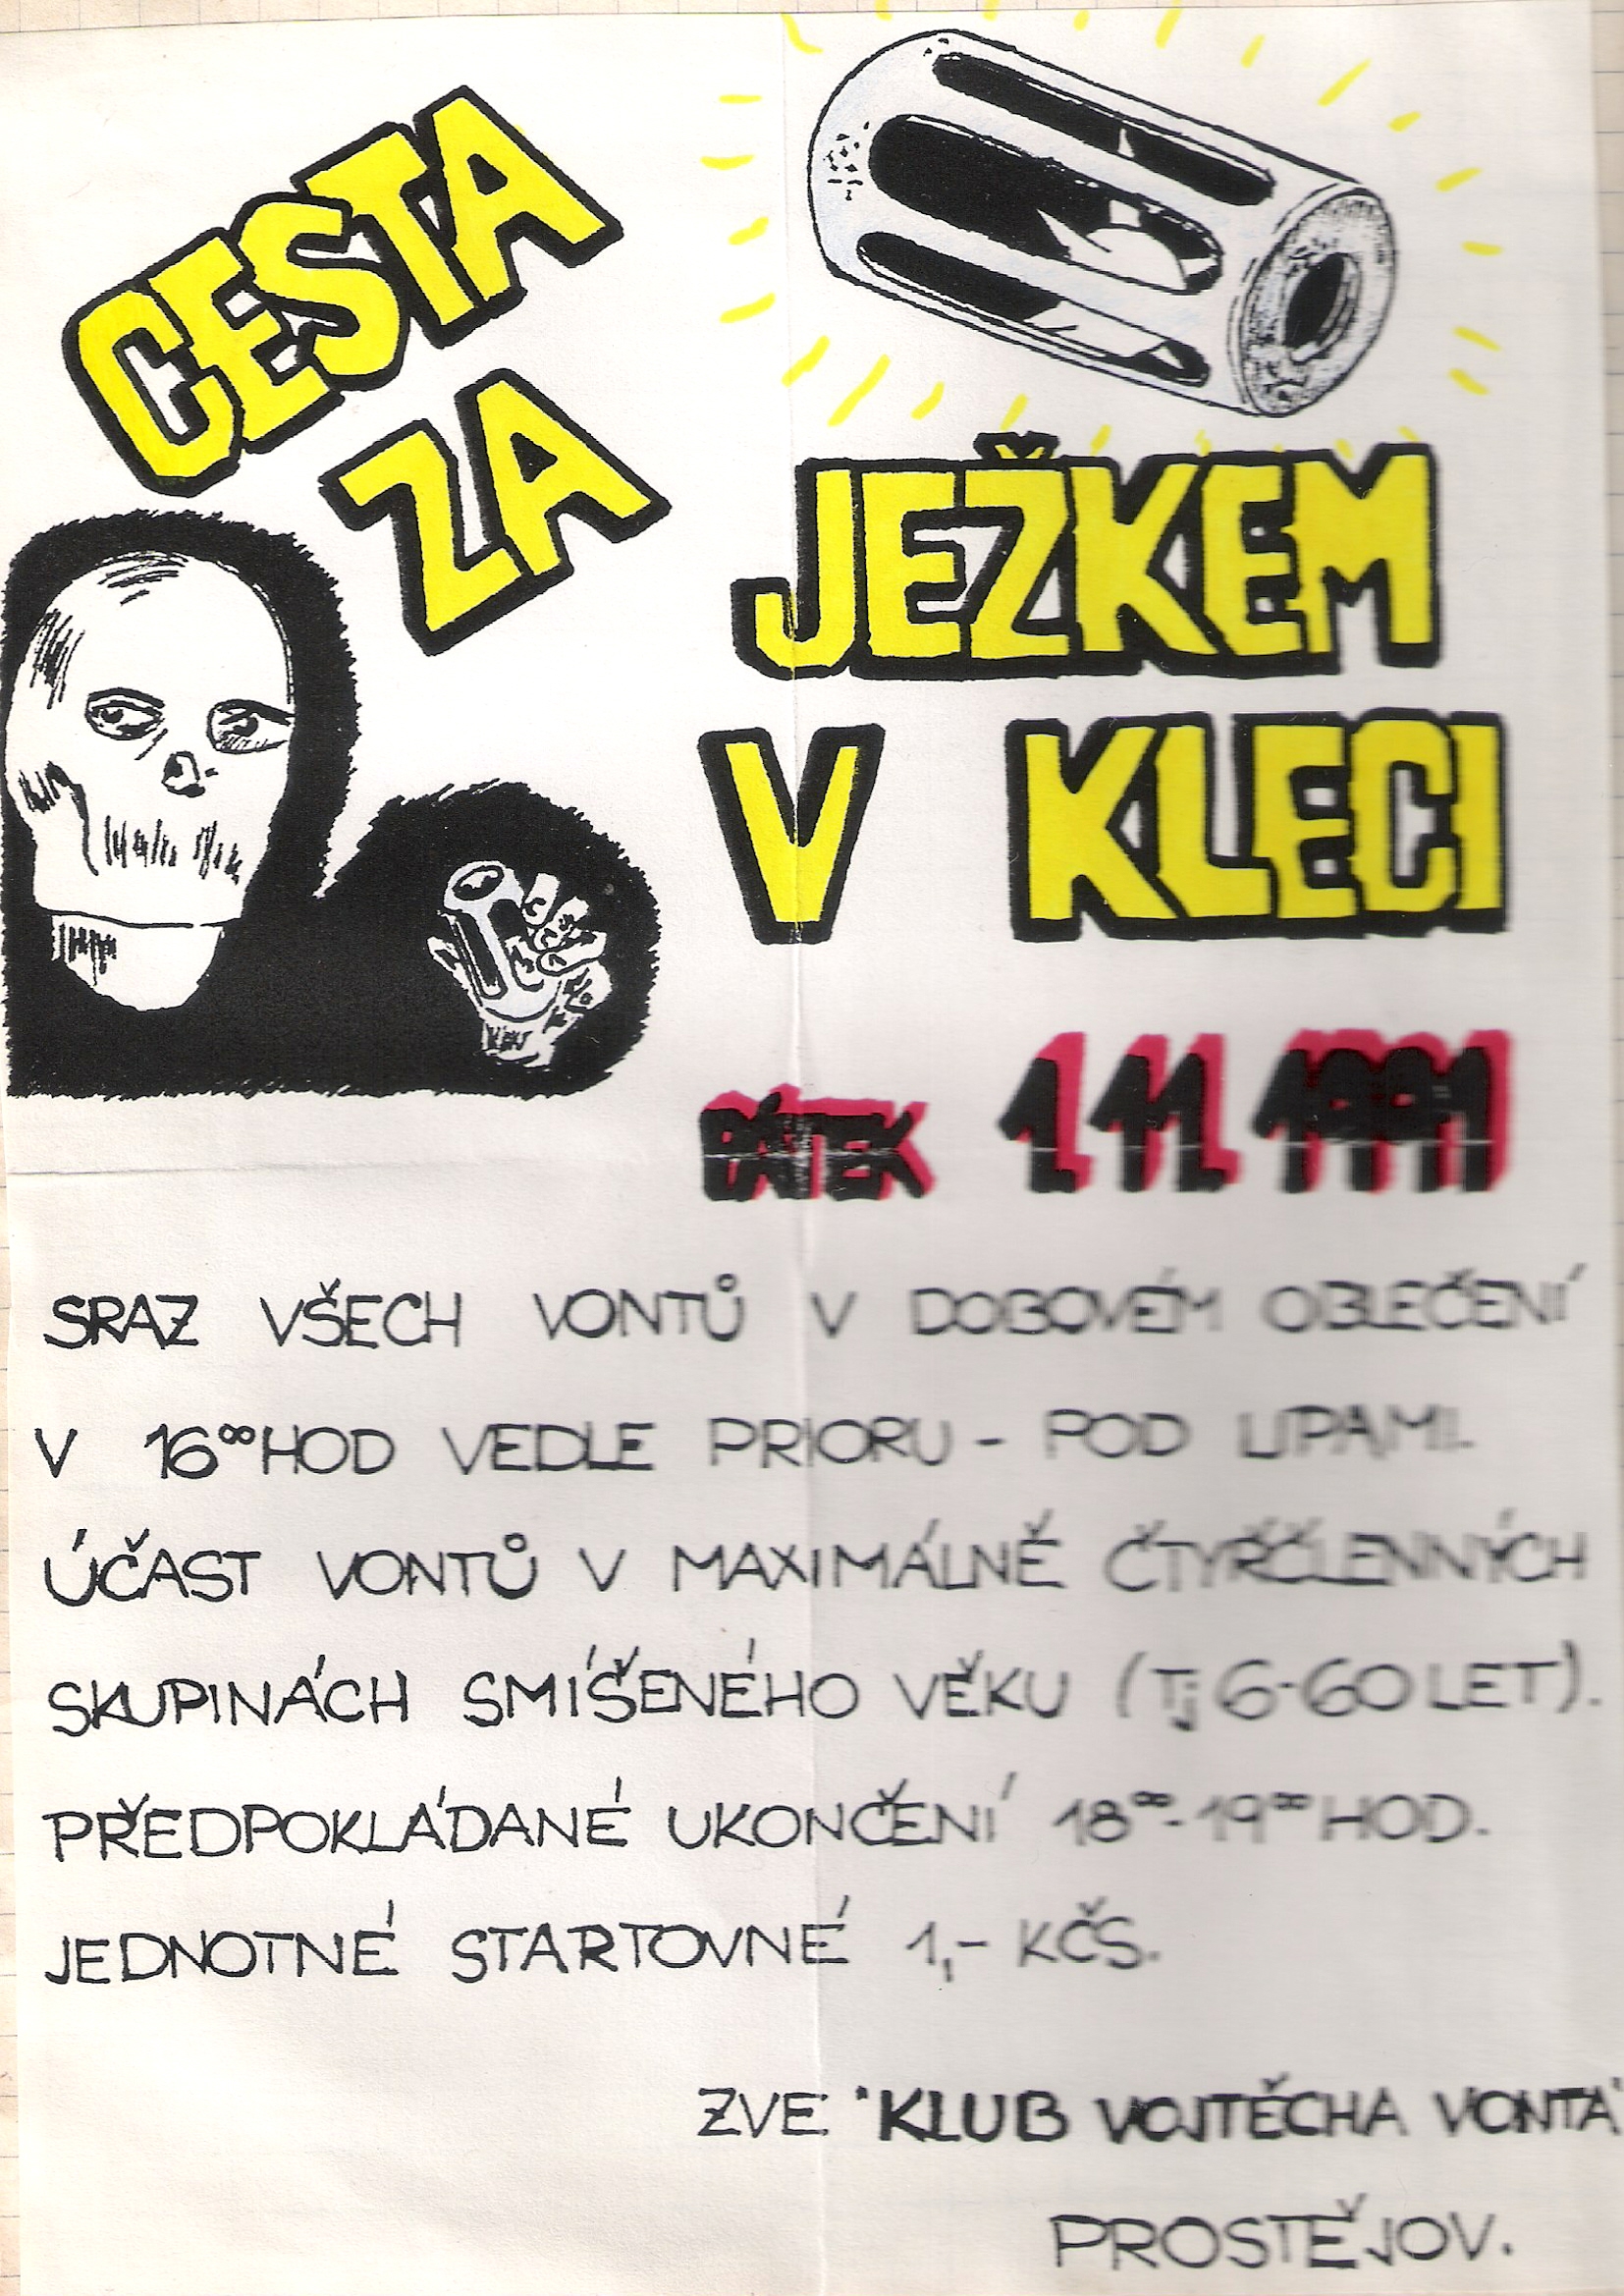 CESTA
ZA
JEŽKEM
V KLECI
PÁTEK 1.11.1991
SRAZ VŠECH VONTŮ V DOBOVÉM OBLEČENÍ
V 16⁰⁰ HOD VEDLE PRIORU - POD LIPAMI.
ÚČAST VONTŮ V MAXIMÁLNĚ ČTYŘČLENNÝCH
SKUPINÁCH SMÍŠENÉHO VĚKU (Tj 6-60 LET).
PŘEDPOKLÁDANÉ UKONČENÍ 18⁰⁰-19⁰⁰ HOD.
JEDNOTNÉ STARTOVNÉ 1,- KČS.
ZVE "KLUB VOJTĚCHA VONTA"
PROSTĚJOV.